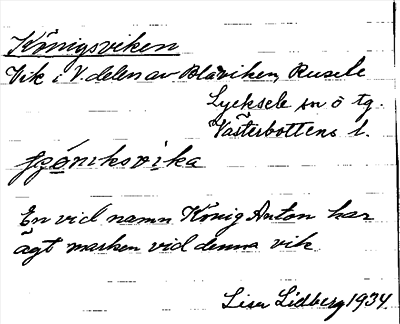 Königsviken
Vik i V. delen av Blåviken, Rusele
Lycksele sn o tg.
Västerbottens l.
En vid namn König Anton har
ägt marken vid denna vik
Lisa Lidberg 1934.